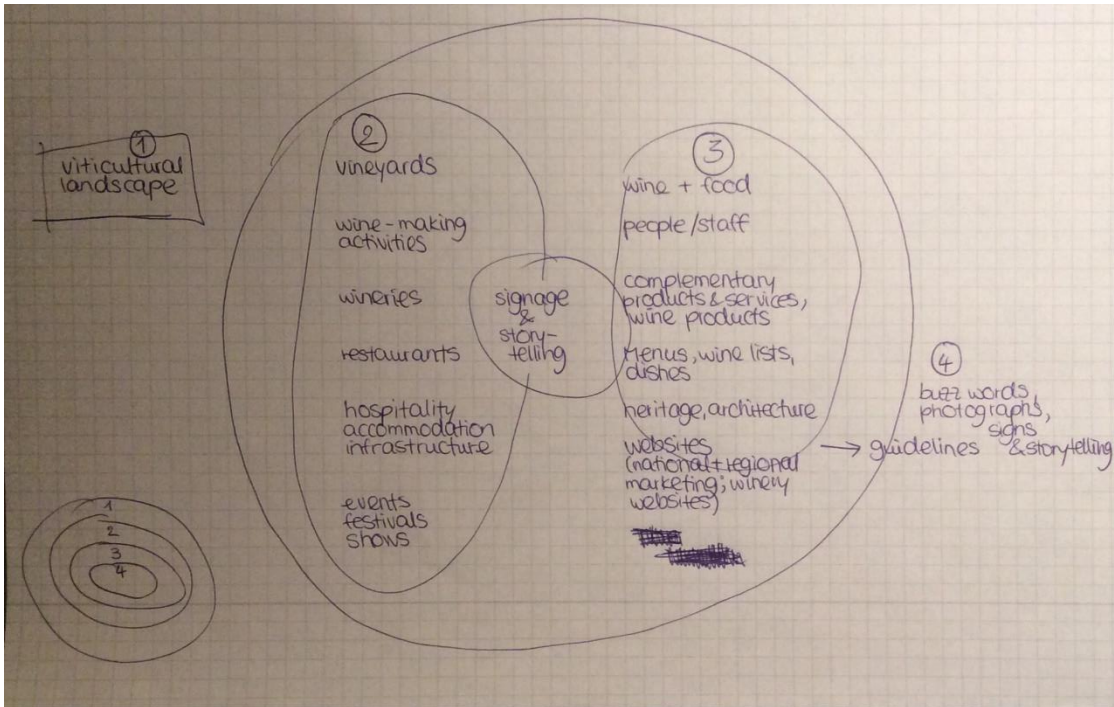 1
viticultural
landscape
2
vineyards
wine-making
activities
wineries
restaurants
hospitality
accommodation
infrastructure
events
festivals
shows
signage
&
story-
telling
3
wine + food
people/staff
complementary
products & services,
wine products
Menus, wine lists,
dishes
heritage, architecture
websites
(national + regional
marketing; winery
websites)
→ guidelines
4
buzz words,
photographs,
signs
& storytelling
1
2
3
4